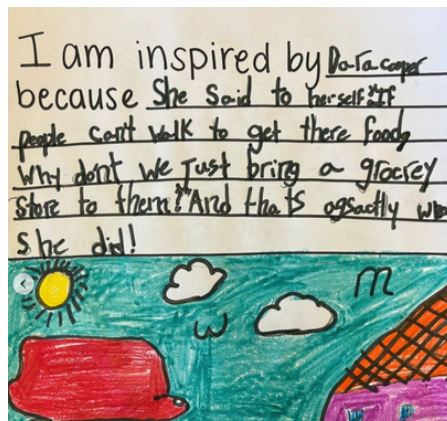 I am inspired by Dara cooper
because She Said to herself "If
people can't walk to get there food,
Why don't we just bring a grocrey
Store to them?" And thats ogsactly
She did!